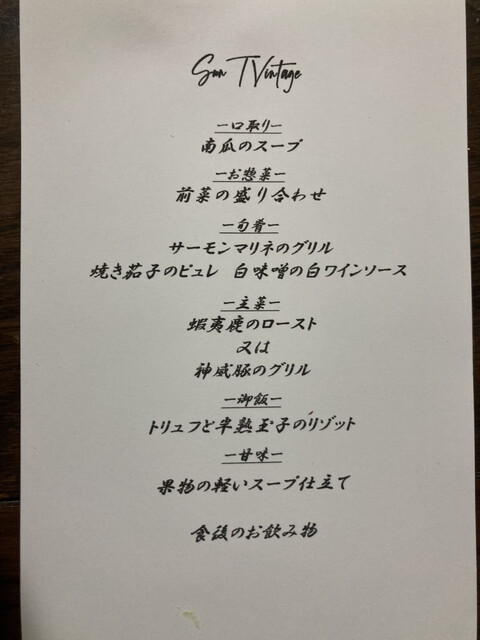 Sun T Vintage
ー口取りー
南瓜のスープ
ーお惣菜ー
前菜の盛り合わせ
ー旬肴ー
サーモンマリネのグリル
焼き茄子のピュレ 白味噌の白ワインソース
ー主菜ー
蝦夷鹿のロースト
又は
神威豚のグリル
ー御飯ー
トリュフと半熟玉子のリゾット
ー甘味ー
果物の軽いスープ仕立て
食後のお飲み物